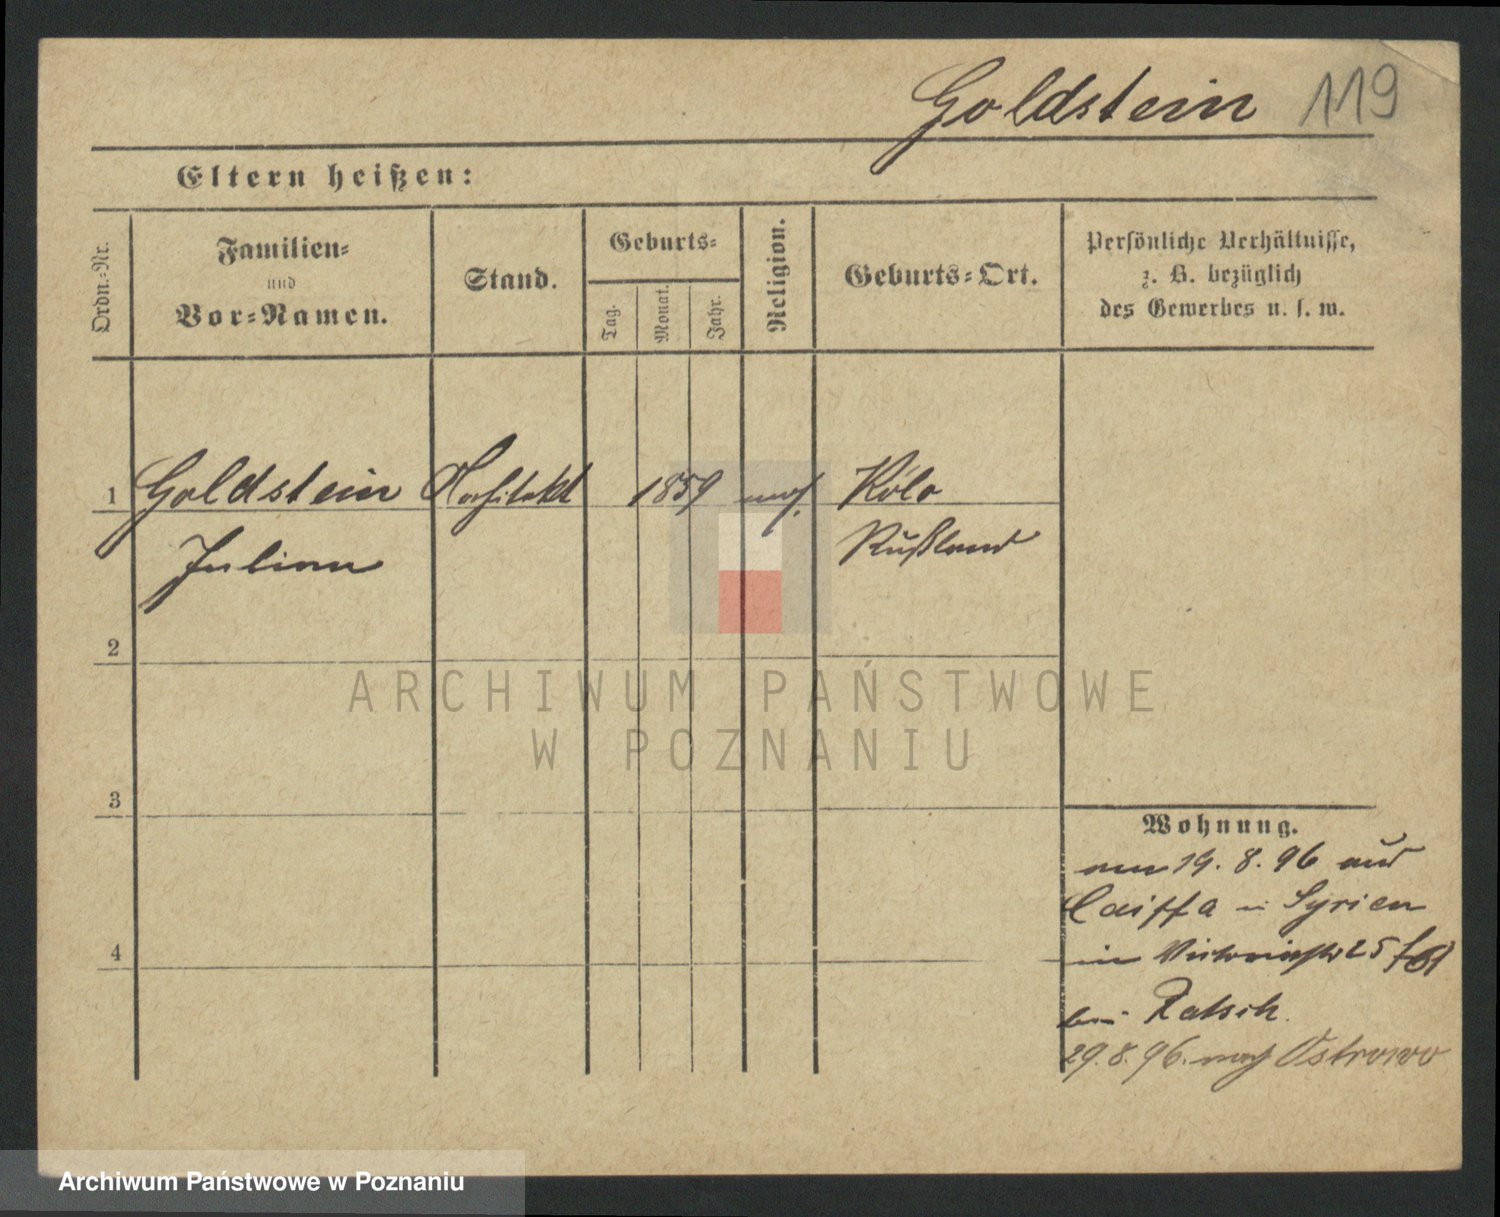 Goldstein 119
Eltern heißen:
Ordn.-Nr.
Familien-
und
Vor-Namen.
Stand.
Geburts-
Tag.
Monat.
Jahr.
Religion.
Geburts-Ort.
Persönliche Verhältnisse,
z. B. bezüglich
des Gewerbes u. s. w.
1 Goldstein Architekt 1859 mos. Kolo
Julian Rußland
2
3
4
Wohnung.
am 19. 8. 96 aus
Caiffa in Syrien
in Victoriastr 25
bei Ratsch
29. 8. 96. nach Ostrowo
ARCHIWUM PAŃSTWOWE
W POZNANIU
Archiwum Państwowe w Poznaniu